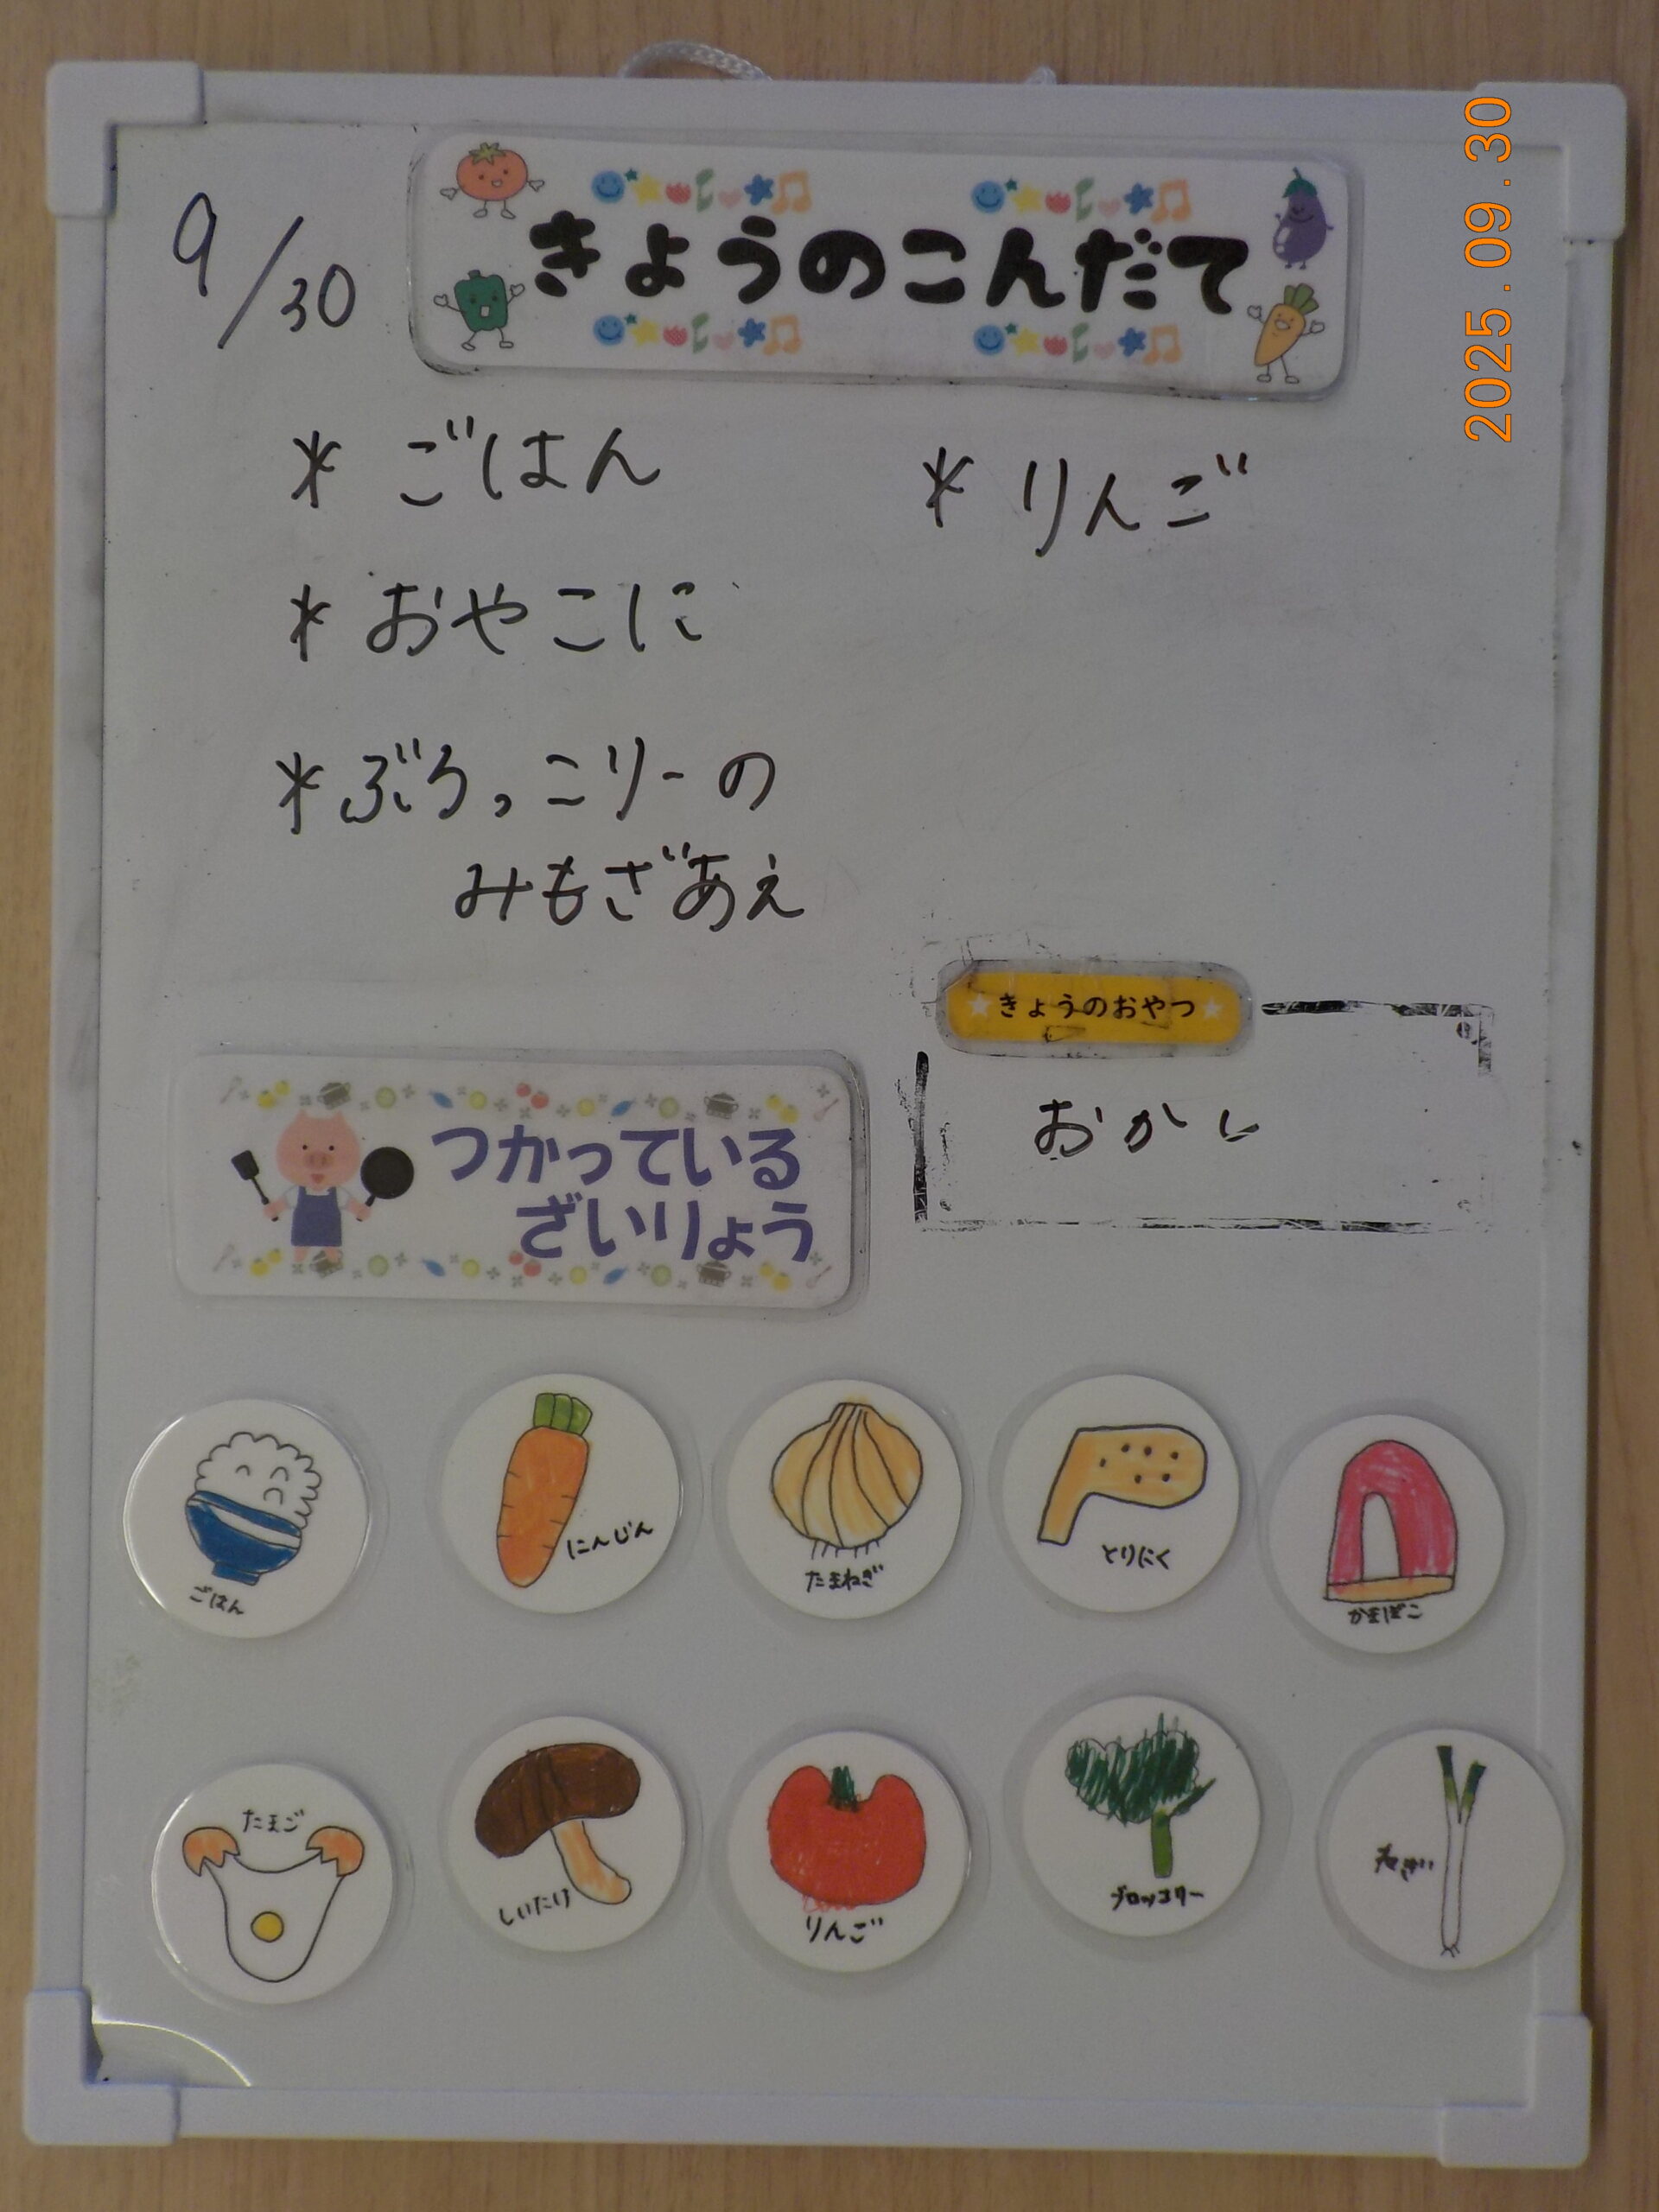 2025.09.30
9/30
きょうのこんだて
* ごはん
* おやこに
* ぶろっこりーの
みもざあえ
* りんご
★きょうのおやつ★
おかし
つかっている
ざいりょう
ごはん
にんじん
たまねぎ
とりにく
かまぼこ
たまご
しいたけ
りんご
ブロッコリー